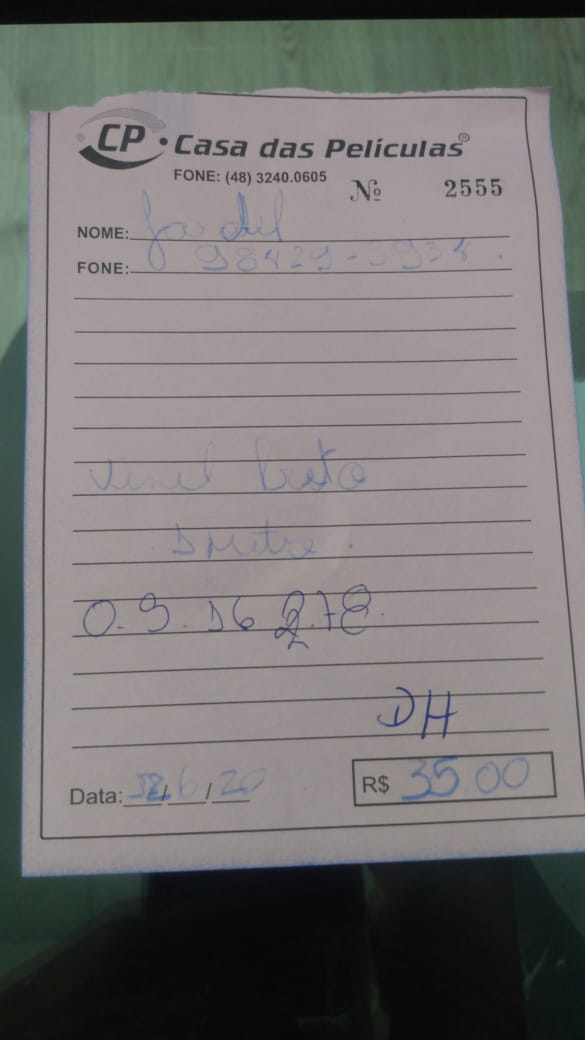 CP · Casa das Películas®
FONE: (48) 3240.0605
Nº 2555
NOME:
FONE: 98429-3938.
Vinil Preto
O.S. D6 278.
DH
Data: / 6 / 20
R$ 35,00